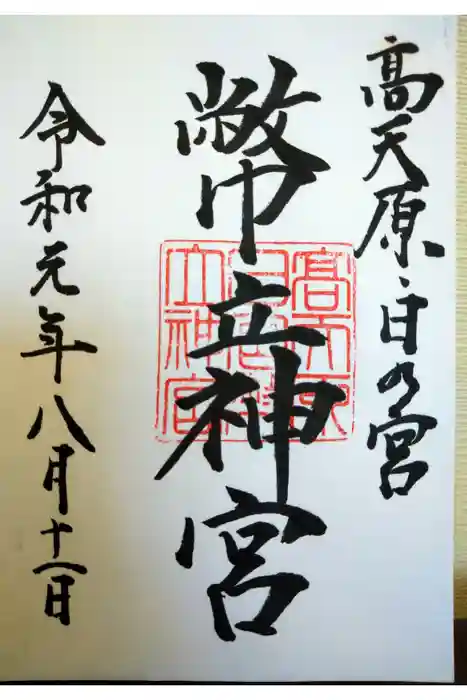 高天原・日の宮
幣立神宮
令和元年八月十一日
高天原
日宮幣
立神宮